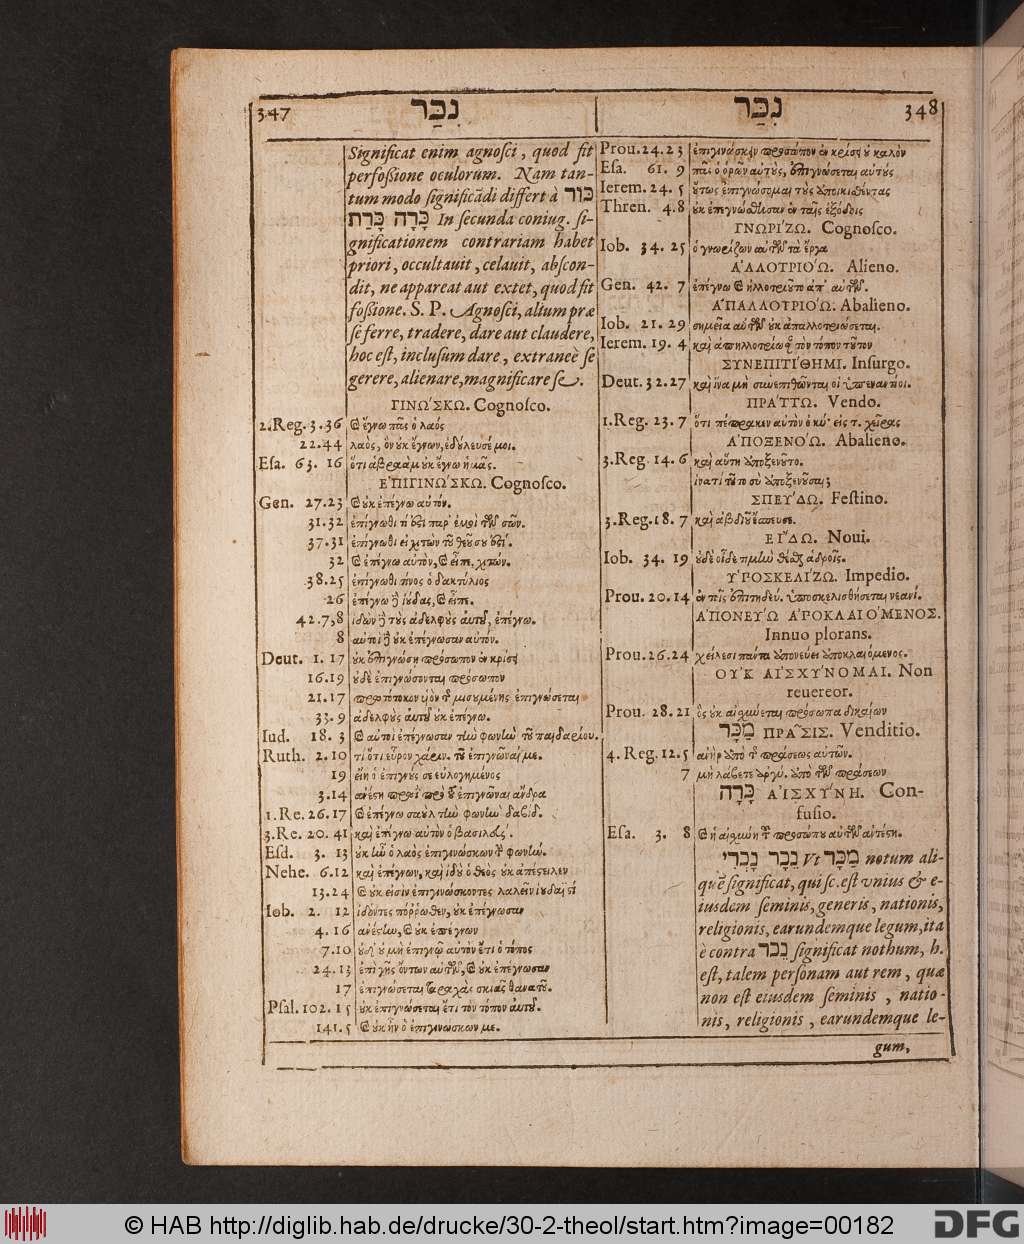 347
נִכַּר
נִכַּר
348
Significat enim agnosci, quod fit
perfoßione oculorum. Nam tan-
tum modo significādi differt à כּוּר
כָּרָה כָּרַת In secunda coniug. si-
gnificationem contrariam habet
priori, occultauit, celauit, abscon-
dit, ne appareat aut extet, quod fit
foßione. S. P. Agnosci, alium præ
se ferre, tradere, dare aut claudere,
hoc est, inclusum dare, extraneè se
gerere, alienare, magnificare se.
ΓΙΝΩ´ΣΚΩ. Cognosco.
2. Reg. 3. 36 ἔγνω πᾶς ὁ λαός
22.44 λαὸς, ὃν οὐκ ἔγνων, ἐδούλευσέ μοι.
Esa. 63. 16 ὅτι ἀβραὰμ οὐκ ἔγνω ἡμᾶς.
ἘΠΙΓΙΝΩ´ΣΚΩ. Cognosco.
Gen. 27.23 καὶ οὐκ ἐπέγνω αὐτόν.
31.32 ἐπίγνωθι τί ἐστι παρ' ἐμοὶ τῶν σῶν.
37.31 ἐπίγνωθι εἰ χιτὼν τοῦ υἱοῦ σου ἐστί.
32 καὶ ἐπέγνω αὐτὸν, καὶ εἶπε, χιτών.
38.25 ἐπίγνωθι τίνος ὁ δακτύλιος
26 ἐπέγνω δὲ ἰούδας, καὶ εἶπε.
42.7,8 ἰδὼν δὲ τοὺς ἀδελφοὺς αὐτοῦ, ἐπέγνω.
8 αὐτοὶ δὲ οὐκ ἐπέγνωσαν αὐτόν.
Deut. 1. 17 οὐκ ἐπιγνώσῃ πρόσωπον ἐν κρίσει
16.19 οὐδὲ ἐπιγνώσονται πρόσωπον
21.17 πρωτότοκον υἱὸν τῆς μισουμένης ἐπιγνώσεται
33. 9 ἀδελφοὺς αὐτοῦ οὐκ ἐπέγνω.
Iud. 18. 3 καὶ αὐτοὶ ἐπέγνωσαν τὴν φωνὴν τοῦ παιδαρίου.
Ruth. 2. 10 τί ὅτι εὗρον χάριν. τοῦ ἐπιγνῶναί με.
19 εἴη ὁ ἐπιγνούς σε εὐλογημένος
3.14 ἀνέστη πρὸ τοῦ ἐπιγνῶναι ἄνδρα
1. Re. 26.17 καὶ ἐπέγνω σαοὺλ τὴν φωνὴν δαβίδ.
3. Re. 20. 41 καὶ ἐπέγνω αὐτὸν ὁ βασιλεύς.
Esd. 3. 13 οὐκ ἦν ὁ λαὸς ἐπιγινώσκων τὴν φωνήν.
Nehe. 6.12 καὶ ἐπέγνων, καὶ ἰδοὺ ὁ θεὸς οὐκ ἀπέστειλεν
13.24 καὶ οὐκ εἰσὶν ἐπιγινώσκοντες λαλεῖν ἰουδαϊστί
Iob. 2. 12 ἰδόντες πόῤῥωθεν, οὐκ ἐπέγνωσαν
4. 16 ἀνέστην, καὶ οὐκ ἐπέγνων
7.10 οὐδ' οὐ μὴ ἐπιγνῷ αὐτὸν ἔτι ὁ τόπος
24. 13 ἐπὶ γῆς ὄντων αὐτῶν, καὶ οὐκ ἐπέγνωσαν
17 ἐπιγνώσεται ταραχὰς σκιᾶς θανάτου.
Psal. 102. 15 οὐκ ἐπιγνώσεται ἔτι τὸν τόπον αὐτοῦ.
141. 5 καὶ οὐκ ἦν ὁ ἐπιγινώσκων με.
Prou. 24. 23 ἐπιγινώσκειν πρόσωπον ἐν κρίσει οὐ καλόν
Esa. 61. 9 πᾶς ὁ ὁρῶν αὐτοὺς, ἐπιγνώσεται αὐτούς
Ierem. 24. 5 οὕτως ἐπιγνώσομαι τοὺς ἀποικισθέντας
Thren. 4.8 οὐκ ἐπεγνώσθησαν ἐν ταῖς ἐξόδοις
ΓΝΩΡΙ´ΖΩ. Cognosco.
Iob. 34. 25 ὁ γνωρίζων αὐτῶν τὰ ἔργα
ἈΛΛΟΤΡΙΟ´Ω. Alieno.
Gen. 42. 7 ἐπέγνω καὶ ἠλλοτριοῦτο ἀπ' αὐτῶν.
ἈΠΑΛΛΟΤΡΙΟ´Ω. Abalieno.
Iob. 21. 29 σημεῖα αὐτῶν οὐκ ἀπαλλοτριώσεται.
Ierem. 19. 4 καὶ ἀπηλλοτρίωσαν τὸν τόπον τοῦτον
ΣΥΝΕΠΙΤΙ´ΘΗΜΙ. Insurgo.
Deut. 32. 27 καὶ ἵνα μὴ συνεπιθῶνται οἱ ὑπεναντίοι.
ΠΡΑ´ΤΤΩ. Vendo.
1. Reg. 23. 7 ὅτι πέπρακεν αὐτὸν ὁ κύ. εἰς τ. χεῖρας
ἈΠΟΞΕΝΟ´Ω. Abalieno.
3. Reg. 14. 6 καὶ αὕτη ἀπεξενοῦτο.
ἱνατί τοῦτο σὺ ἀποξενοῦσαι;
ΣΠΕΥ´ΔΩ. Festino.
3. Reg. 18. 7 καὶ ἀβδιοῦ ἔσπευσε.
ΕἸΔΩ. Noui.
Iob. 34. 19 οὐδὲ οἶδε τιμὴν θέσθαι ἁδροῖς.
ΥΡΟΣΚΕΛΙ´ΖΩ. Impedio.
Prou. 20. 14 ἐν τοῖς ἐπιτηδεύ. ὑποσκελισθήσεται νεανί.
ἈΠΟΝΕΥ´Ω ἈΡΟΚΛΑΙΟ´ΜΕΝΟΣ.
Innuo plorans.
Prou. 26. 24 χείλεσι πάντα ἀπονεύει ἀποκλαιόμενος.
ΟΥ᾿Κ ΑἸΣΧΥ´ΝΟΜΑΙ. Non
reuereor.
Prou. 28. 21 ὃς οὐκ αἰσχύνεται πρόσωπα δικαίων
מַכָּר ΠΡΑ῀ΣΙΣ. Venditio.
4. Reg. 12. 5 ἀνὴρ ἀπὸ τῆς πράσεως αὐτῶν.
7 μὴ λάβετε ἀργύ. ἀπὸ τῶν πράσεων
כָּרָה ΑἸΣΧΥ´ΝΗ. Con-
fusio.
Esa. 3. 8 καὶ ἡ αἰσχύνη τοῦ προσώπου αὐτῶν ἀντέστη.
נֵכָר נָכְרִי Vt מַכָּר notum ali-
quē significat, qui sc. est vnius & e-
iusdem seminis, generis, nationis,
religionis, earundemque legum, ita
è contra נֵכָר significat nothum, h.
est, talem personam aut rem, quæ
non est eiusdem seminis, natio-
nis, religionis, earundemque le-
gum,
© HAB http://diglib.hab.de/drucke/30-2-theol/start.htm?image=00182
DFG